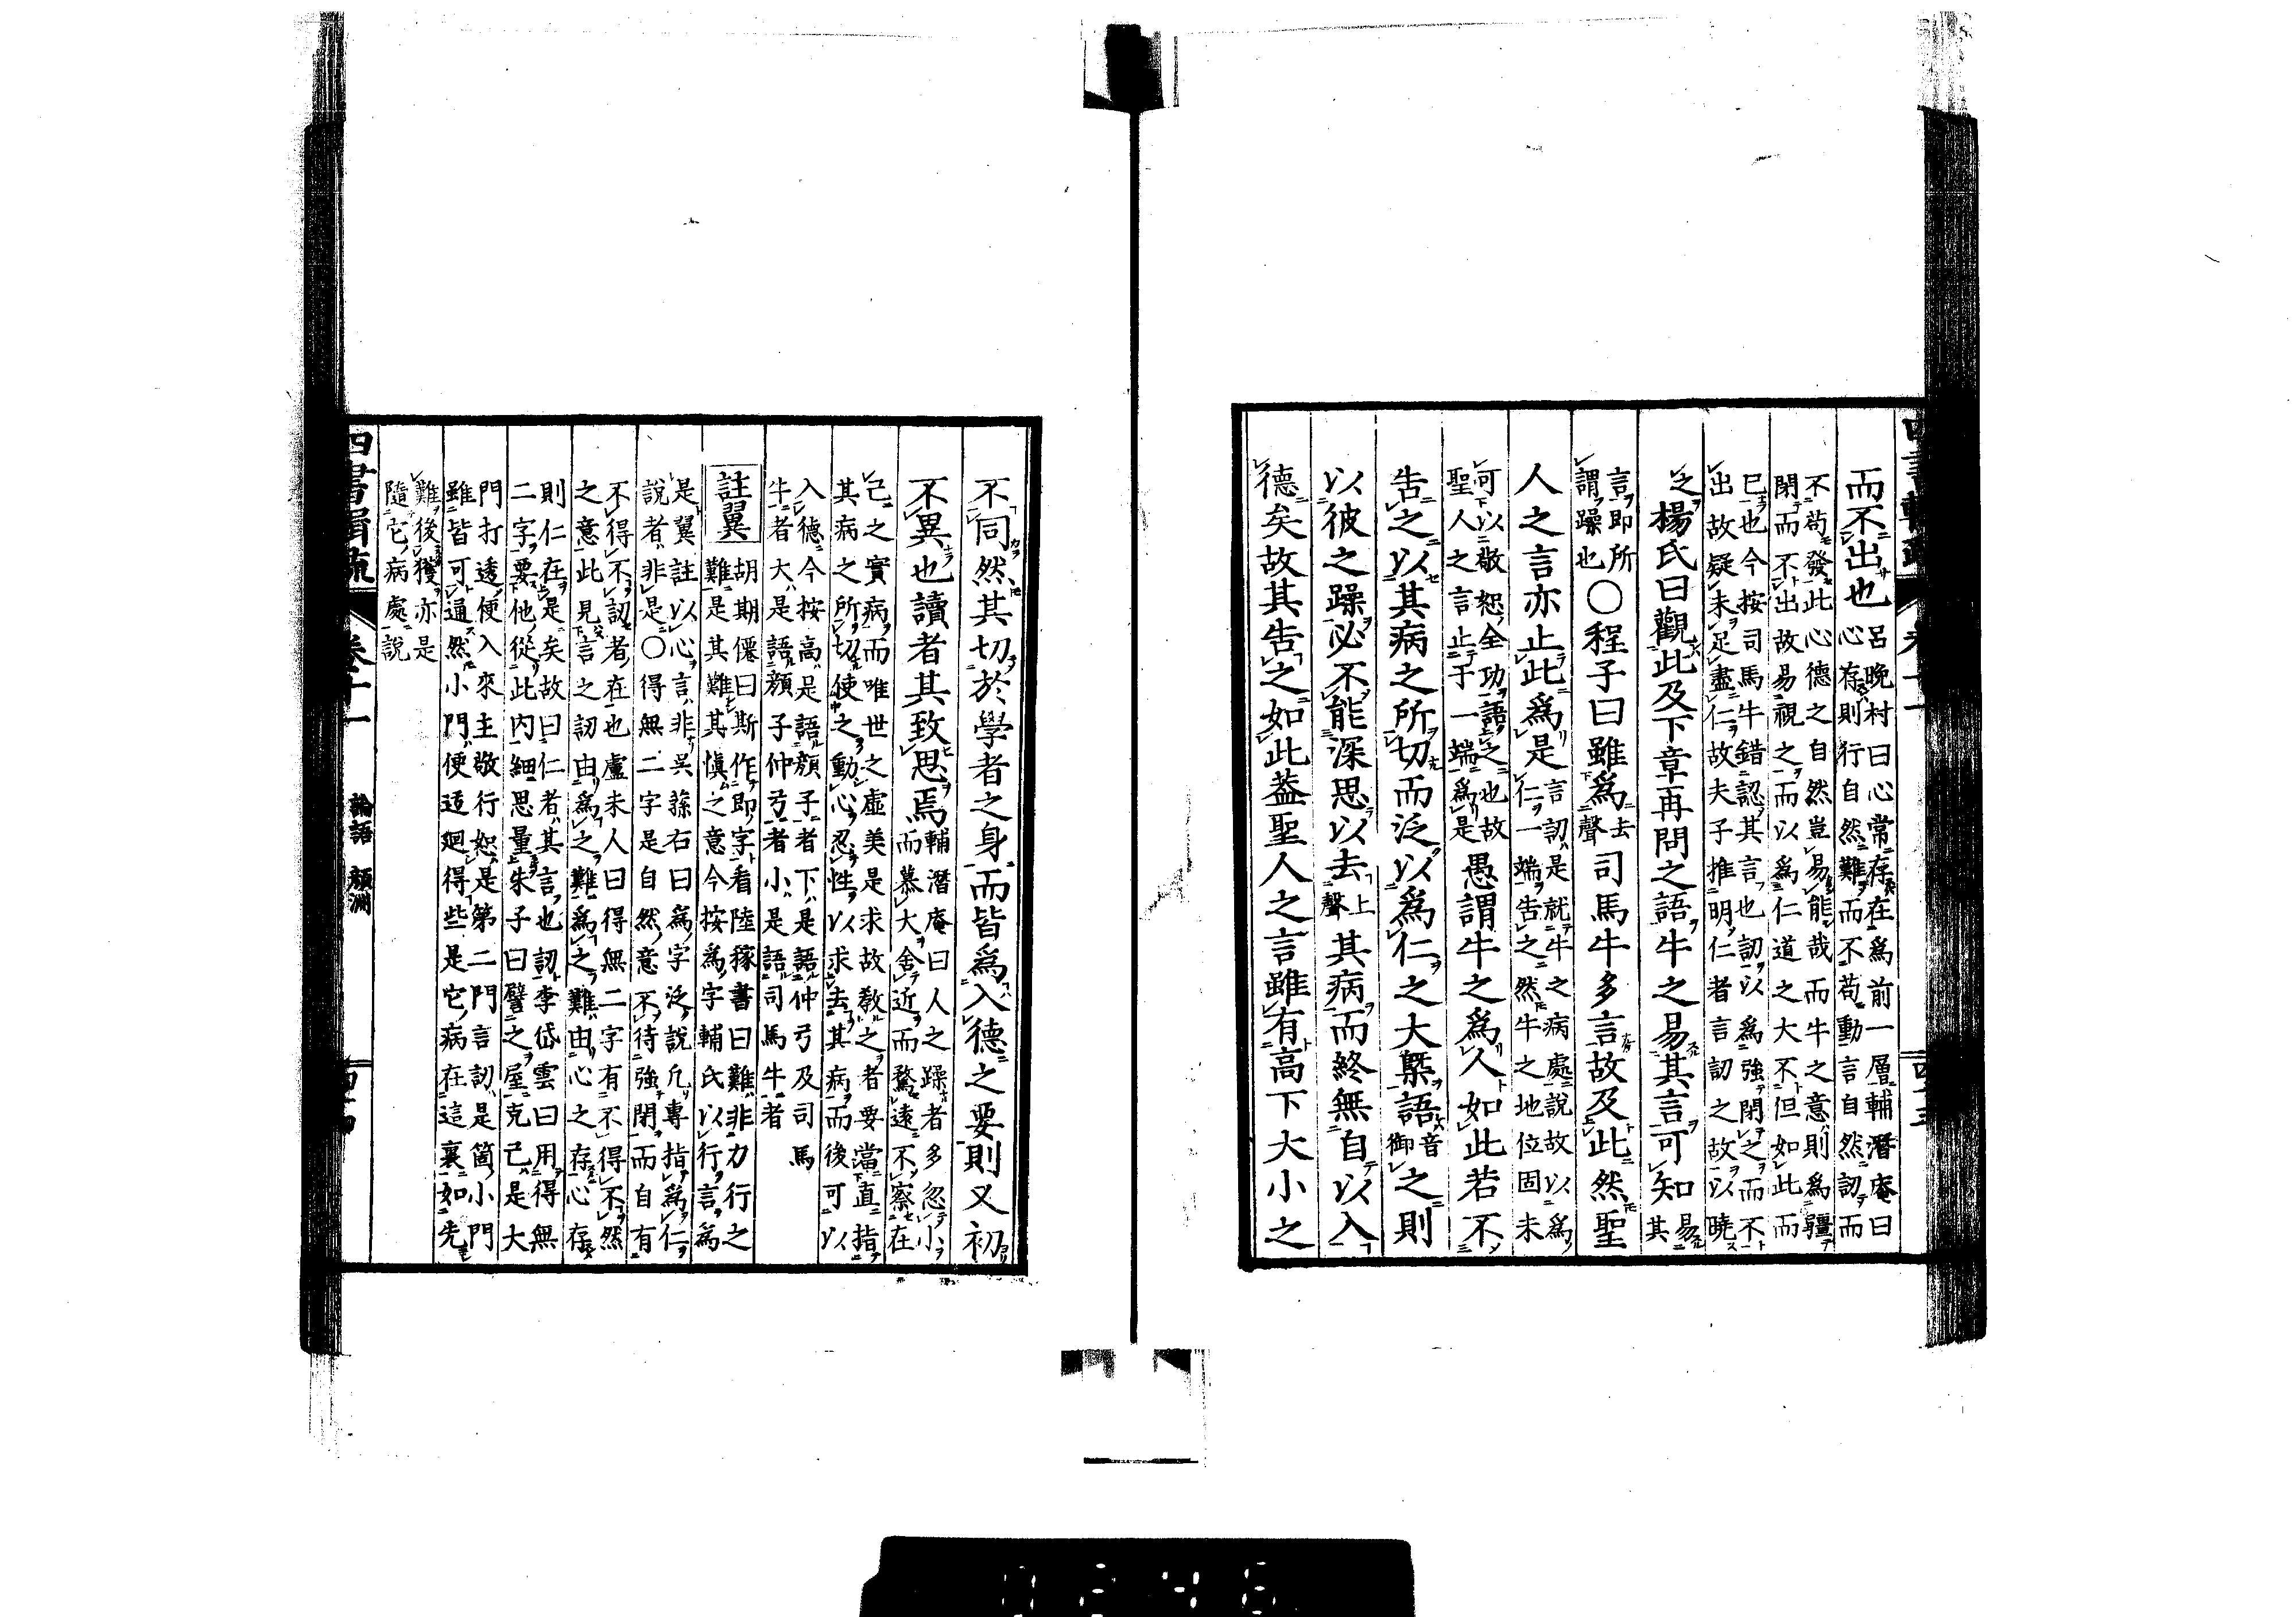 而不出也
呂晚村曰心常存在爲前一層輔潛庵曰
心存則行自然難而不苟動言自然訒而
不苟發此心德之自然豈易能哉而牛之意則爲彊
閉而不出故易視之而以爲仁道之大不但如此而
已也今按司馬牛錯認其言也訒以爲強閉之而不
出故疑未足盡仁故夫子推明仁者言訒之故以曉
之楊氏曰觀此及下章再問之語牛之易其言可知
易其
言即所
謂躁也
〇程子曰雖爲
去聲
司馬牛多言故及此然聖
人之言亦止此爲是
言訒是就牛之病處說故以爲
仁一端告之然牛之地位固未
可以敬恕全功語之也故
聖人之言止于一端爲是
愚謂牛之爲人如此若不
告之以其病之所切而泛以爲仁之大槩語
音御
之則
以彼之躁必不能深思以去
上聲
其病而終無自以入
德矣故其告之如此蓋聖人之言雖有高下大小之
不同然其切於學者之身而皆爲入德之要則又初
不異也讀者其致思焉
輔潛庵曰人之躁者多忽小
而慕大舍近而騖遠不察在
己之實病而唯世之虛美是求故敎之者要當直指
其病之所切使之動心忍性以求去其病而後可以
入德今按高是語顏子者下是語仲弓及司馬
牛者大是語顏子仲弓者小是語司馬牛者
註翼
胡期僊曰斯作即字看陸稼書曰難非力行之
難是其難其愼之意今按爲字輔氏以行言爲
是翼註以心言非吳蓀右曰爲字泛說凢專指爲仁
說者非是〇得無二字是自然意不待強閉而自有
不得不訒者在也盧未人曰得無二字有不得不然
之意此見言之訒由爲之難爲之難由心之存心存
則仁在是矣故曰仁者其言也訒李岱雲曰用得無
二字要他從此內細思量朱子曰譬之屋克己是大
門打透便入來主敬行恕是第二門言訒是箇小門
雖皆可通然小門便迂廻得些是它病在這裏如先
難後獲亦是
隨它病處說
四書輯疏 卷十一 論語 顏淵